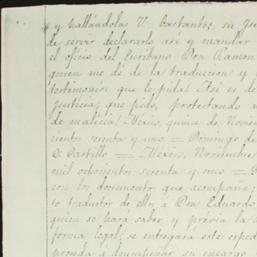 y hallándolas V. bastantes, se
de servir declararlo así y mandar
el oficio del Escribano Don Ramon
quien me dé de la traduccion y
testimonios que le pida. Así es de
justicia, que pido, protestando
de malicia. México, quince de Novie
cientos sesenta y uno = Domingo de
D. Castillo = México, Noviembre
mil ochocientos sesenta y uno =
con los documentos que acompaña;
to traductor de ellos, á Don Eduardo
quien se hará saber, y prévia la
forma legal, se entregará este exped
proceda á desempeñar su encargo